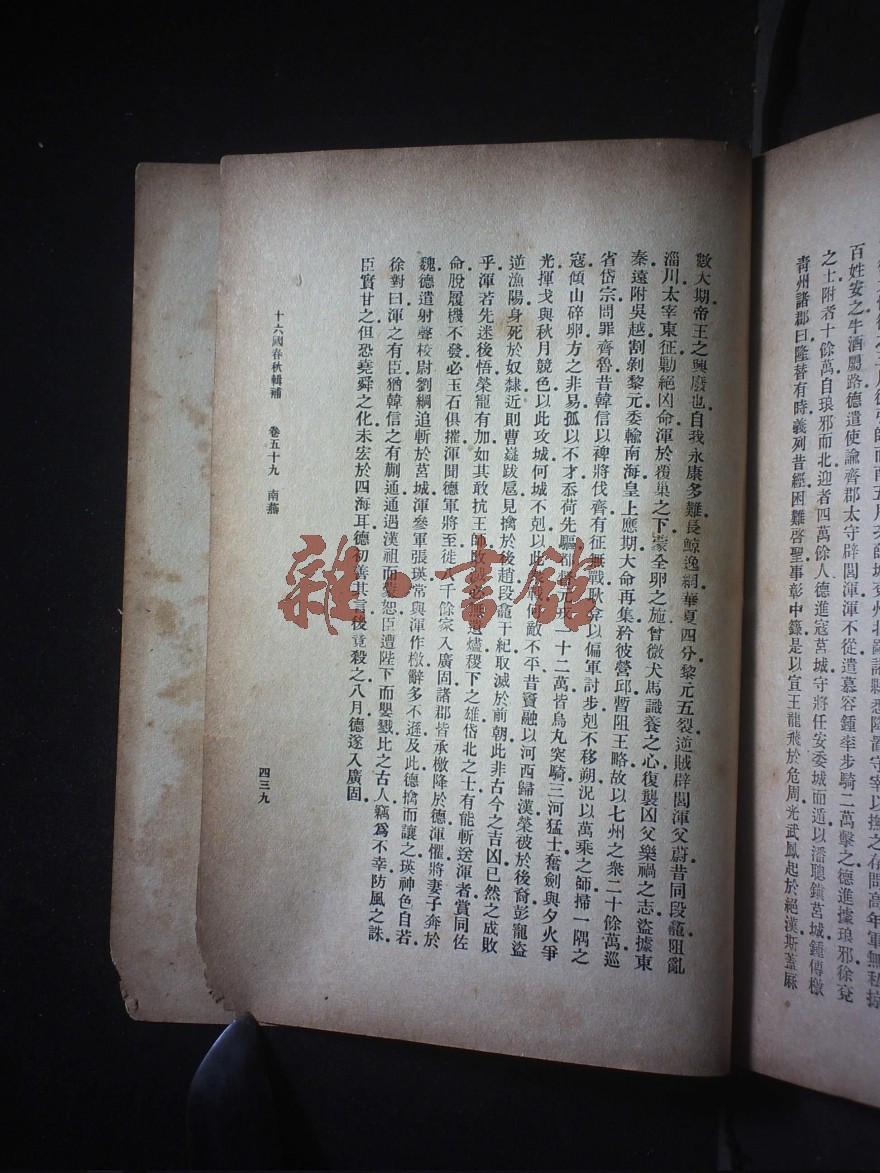 百姓安之牛酒屬路德遣使諭齊郡太守辟閭渾渾不從遣慕容鍾率步騎二萬擊之德進據琅邪徐兗
之士附者十餘萬自琅邪而北迎者四萬餘人德進寇莒城守將任安委城而遁以潘聰鎮莒城鍾傳檄
青州諸郡曰隆替有時義列昔經困難啓聖事彰中籙是以宣王龍飛於危周光武鳳起於絕漢斯蓋厤
數大期帝王之興廢也自我永康多難長鯨逸網華夏四分黎元五裂逆賊辟閭渾父蔚昔同段龕阻亂
淄川太宰東征勦絕凶命渾於覆巢之下蒙全卵之施曾微犬馬識養之心復襲凶父樂禍之志盜據東
秦遠附吳越割剝黎元委輸南海皇上應期大命再集矜彼營邱暫阻王略故以七州之衆二十餘萬巡
省岱宗問罪齊魯昔韓信以裨將伐齊有征無戰耿弇以偏軍討步剋不移朔況以萬乘之師掃一隅之
寇傾山碎卵方之非易孤以不才忝荷先驅都督元戎一十二萬皆烏丸突騎三河猛士奮劍與夕火爭
光揮戈與秋月競色以此攻城何城不剋以此衆戰何敵不平昔竇融以河西歸漢榮被於後裔彭寵盜
逆漁陽身死於奴隸近則曹嶷跋扈見擒於後趙段龕干紀取滅於前朝此非古今之吉凶已然之成敗
乎渾若先迷後悟榮寵有加如其敢抗王師敗滅必無遺燼稷下之雄岱北之士有能斬送渾者賞同佐
命脫履機不發必玉石俱摧渾聞德軍將至徙八千餘家入廣固諸郡皆承檄降於德渾懼將妻子奔於
魏德遣射聲校尉劉綱追斬於莒城渾參軍張瑛常與渾作檄辭多不遜及此德擒而讓之瑛神色自若
徐對曰渾之有臣猶韓信之有蒯通通遇漢祖而蒙恕臣遭陛下而嬰戮比之古人竊爲不幸防風之誅
臣實甘之但恐堯舜之化未宏於四海耳德初善其言後竟殺之八月德遂入廣固
十六國春秋輯補 卷五十九 南燕
四三九
雜·書館